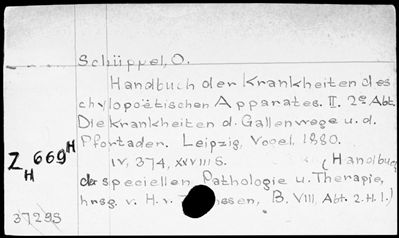 Schüppel, O.
Handbuch der Krankheiten des
chylopoëtischen Apparates. II. 2e Abt.
Die Krankheiten d. Gallenwege u. d.
Pfortader. Leipzig, Vogel. 1880.
IV, 374, XXVIII S. (Handbuch
der speciellen Pathologie u. Therapie,
hrsg. v. H. v. B. VIII, Abt. 2. H. 1.)
Z 669 H
H
37298